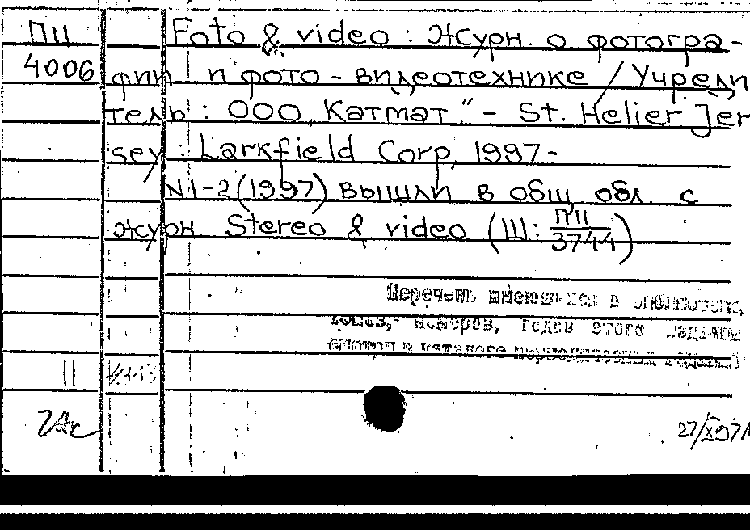 ПII Foto & video : Журн. о фотогра-
4006 фии и фото-видеотехнике / Учреди
тель : ООО „Катмат" - St. Helier Jer
sey : Larkfield Corp, 1997-
N1-2(1997) вышли в общ. обл. с
журн. Stereo & video (Ш: ПII
3744)
Перечень имеющихся в библиотеке
номеров, годов этого издания
II
27/X-97